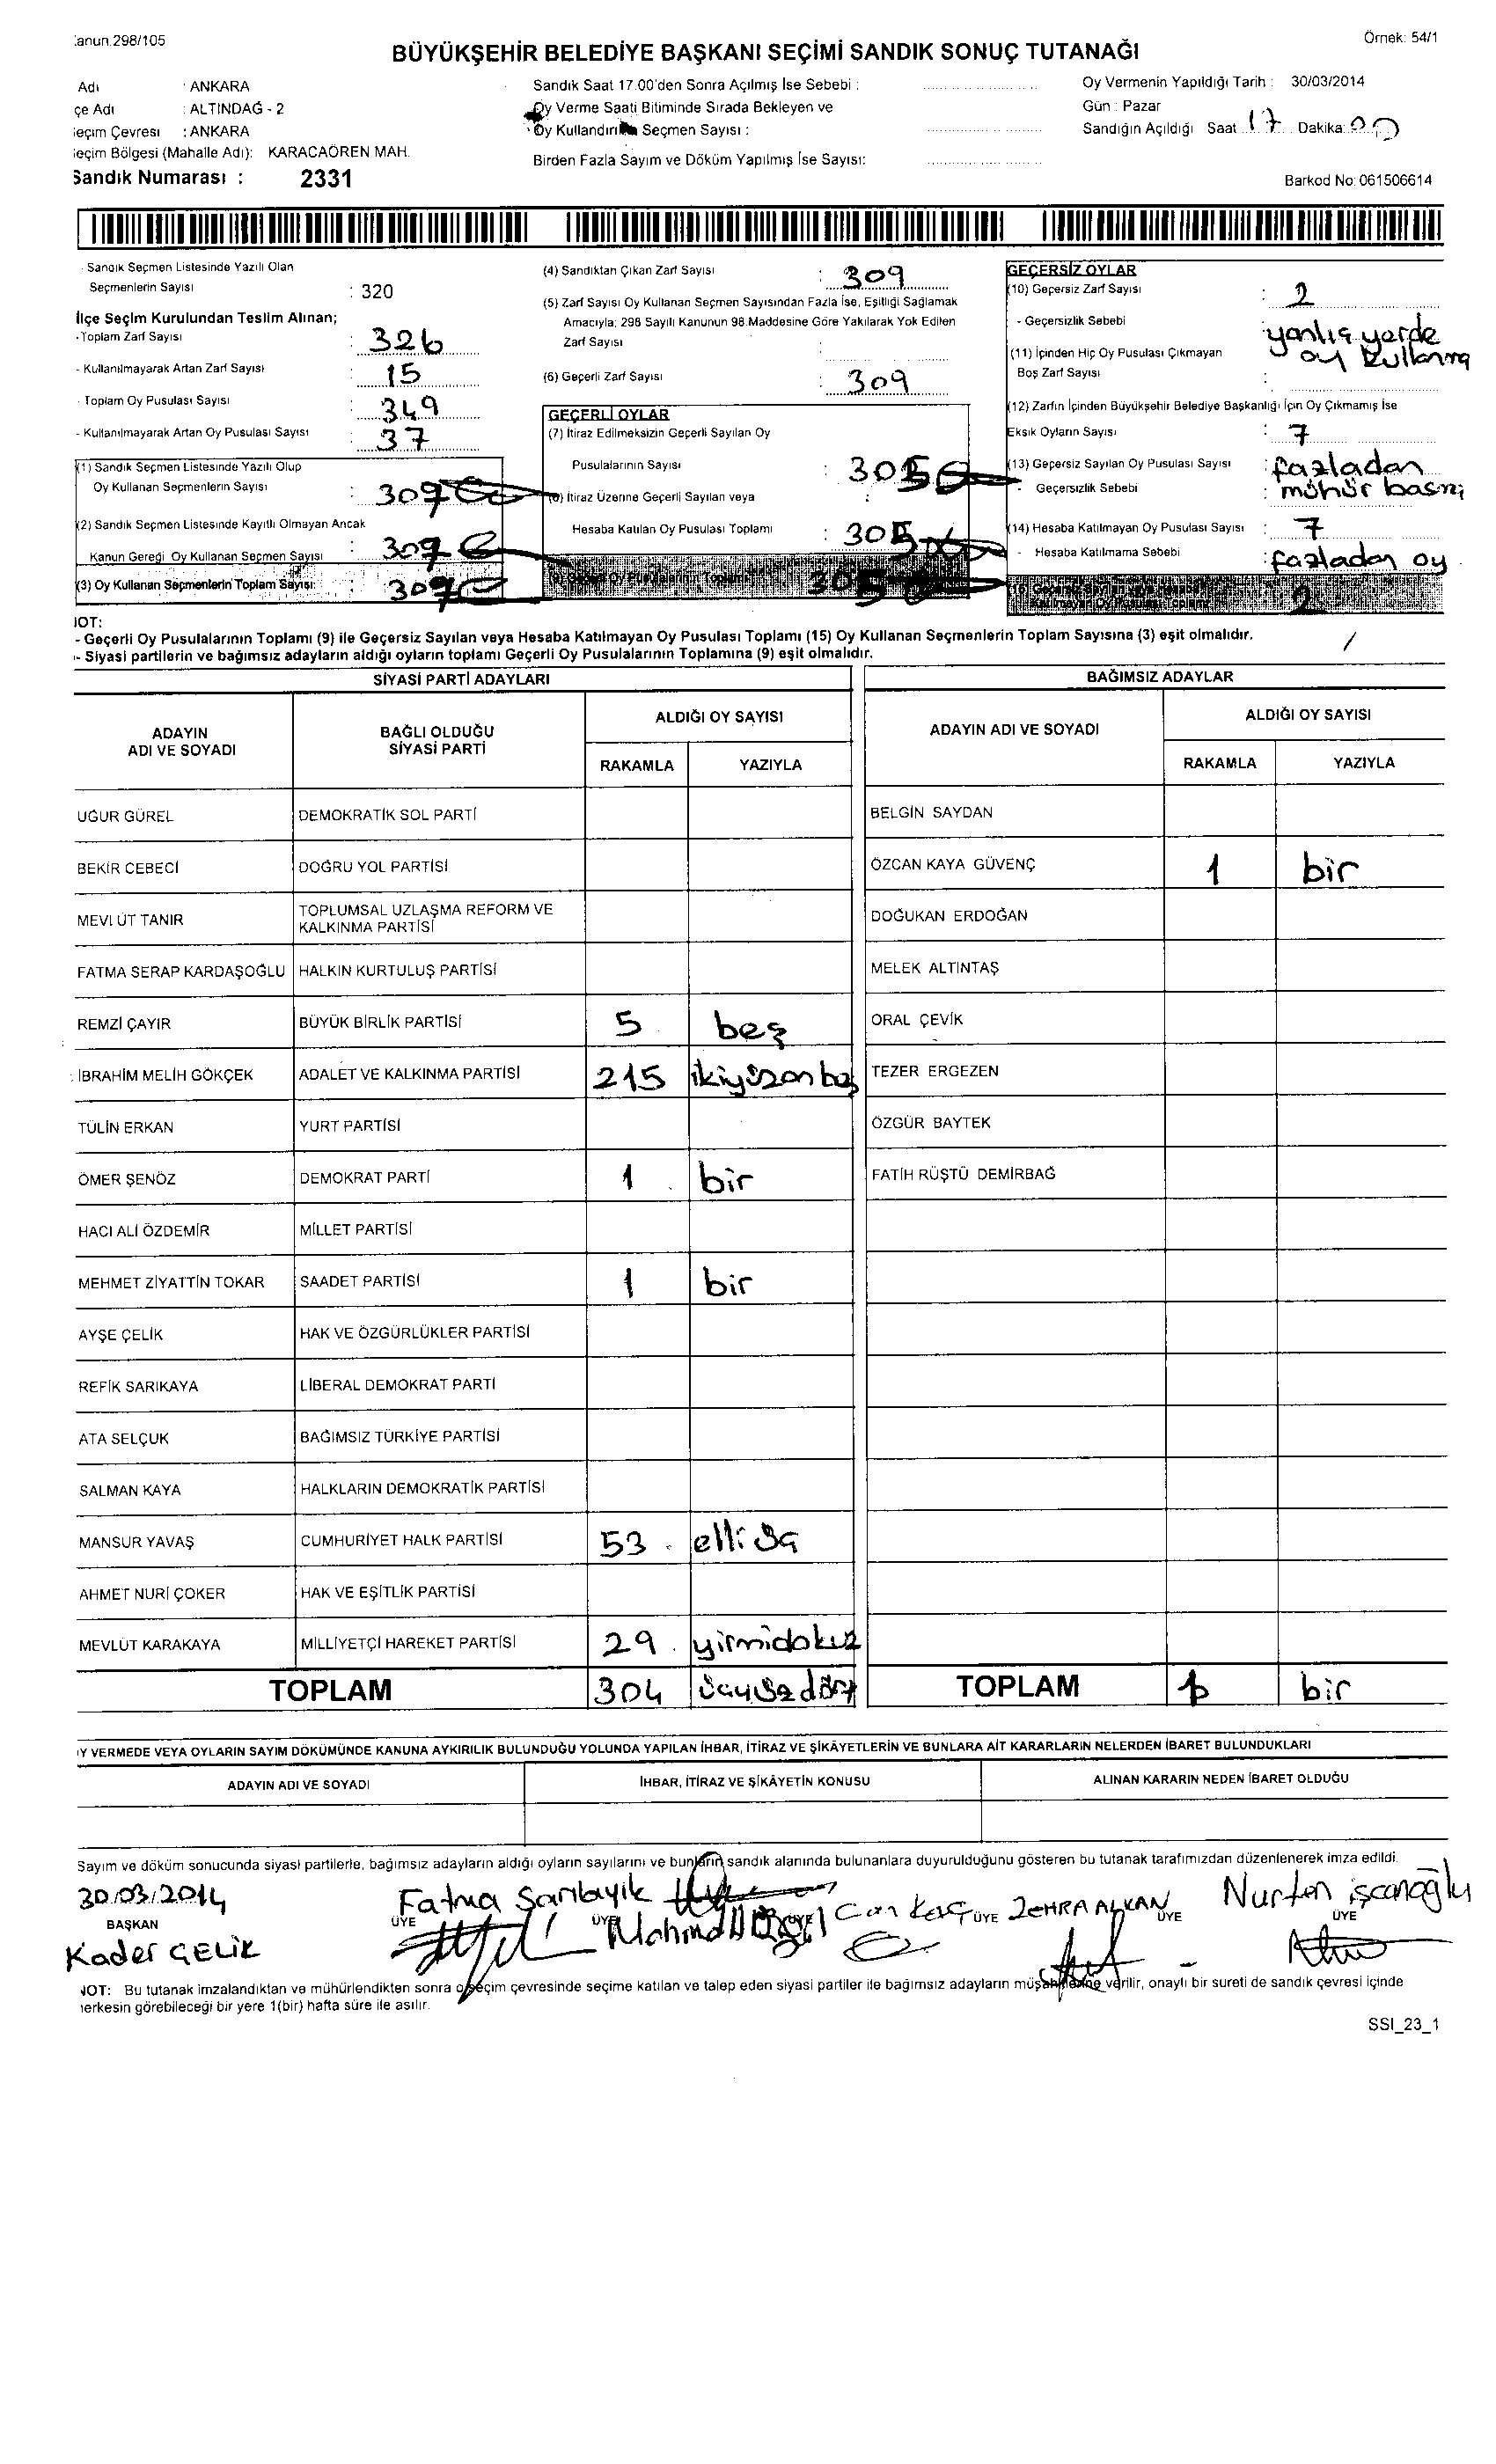 anun 298/105
Örnek: 54/1
BÜYÜKŞEHİR BELEDİYE BAŞKANI SEÇİMİ SANDIK SONUÇ TUTANAĞI
Adı : ANKARA
çe Adı : ALTINDAĞ - 2
eçim Çevresi : ANKARA
eçim Bölgesi (Mahalle Adı): KARACAÖREN MAH.
Sandık Numarası : 2331
Sandık Saat 17.00'den Sonra Açılmış İse Sebebi :
Oy Verme Saati Bitiminde Sırada Bekleyen ve
Oy Kullandırılan Seçmen Sayısı :
Birden Fazla Sayım ve Döküm Yapılmış İse Sayısı:
Oy Vermenin Yapıldığı Tarih : 30/03/2014
Gün : Pazar
Sandığın Açıldığı Saat 17 Dakika: 00
Barkod No: 061506614
Sandık Seçmen Listesinde Yazılı Olan
Seçmenlerin Sayısı : 320
İlçe Seçim Kurulundan Teslim Alınan;
-Toplam Zarf Sayısı : 326
- Kullanılmayarak Artan Zarf Sayısı : 15
- Toplam Oy Pusulası Sayısı : 349
- Kullanılmayarak Artan Oy Pusulası Sayısı : 37
(1) Sandık Seçmen Listesinde Yazılı Olup
Oy Kullanan Seçmenlerin Sayısı : 307
(2) Sandık Seçmen Listesinde Kayıtlı Olmayan Ancak
Kanun Gereği Oy Kullanan Seçmen Sayısı : 307
(3) Oy Kullanan Seçmenlerin Toplam Sayısı: 307
(4) Sandıktan Çıkan Zarf Sayısı : 309
(5) Zarf Sayısı Oy Kullanan Seçmen Sayısından Fazla İse, Eşitliği Sağlamak
Amacıyla; 298 Sayılı Kanunun 98.Maddesine Göre Yakılarak Yok Edilen
Zarf Sayısı :
(6) Geçerli Zarf Sayısı : 309
GEÇERLİ OYLAR
(7) İtiraz Edilmeksizin Geçerli Sayılan Oy
Pusulalarının Sayısı : 305
(8) İtiraz Üzerine Geçerli Sayılan veya :
Hesaba Katılan Oy Pusulası Toplamı : 305
(9) Geçerli Oy Pusulalarının Toplamı 305
GEÇERSİZ OYLAR
(10) Geçersiz Zarf Sayısı : 2
- Geçersizlik Sebebi : yanlış yerde
oy kullanma
(11) İçinden Hiç Oy Pusulası Çıkmayan
Boş Zarf Sayısı :
(12) Zarfın İçinden Büyükşehir Belediye Başkanlığı İçin Oy Çıkmamış İse
Eksik Oyların Sayısı : 7
(13) Geçersiz Sayılan Oy Pusulası Sayısı : fazladan
- Geçersizlik Sebebi : mühür basmı
(14) Hesaba Katılmayan Oy Pusulası Sayısı : 7
- Hesaba Katılmama Sebebi : fazladan oy
(15) Geçersiz Sayılan veya Hesaba
Katılmayan Oy Pusulası Toplamı 2
NOT:
- Geçerli Oy Pusulalarının Toplamı (9) ile Geçersiz Sayılan veya Hesaba Katılmayan Oy Pusulası Toplamı (15) Oy Kullanan Seçmenlerin Toplam Sayısına (3) eşit olmalıdır.
- Siyasi partilerin ve bağımsız adayların aldığı oyların toplamı Geçerli Oy Pusulalarının Toplamına (9) eşit olmalıdır.
SİYASİ PARTİ ADAYLARI
ADAYIN
ADI VE SOYADI
BAĞLI OLDUĞU
SİYASİ PARTİ
ALDIĞI OY SAYISI
RAKAMLA YAZIYLA
UĞUR GÜREL DEMOKRATİK SOL PARTİ
BEKİR CEBECİ DOĞRU YOL PARTİSİ
MEVLÜT TANIR TOPLUMSAL UZLAŞMA REFORM VE
KALKINMA PARTİSİ
FATMA SERAP KARDAŞOĞLU HALKIN KURTULUŞ PARTİSİ
REMZİ ÇAYIR BÜYÜK BİRLİK PARTİSİ 5 beş
İBRAHİM MELİH GÖKÇEK ADALET VE KALKINMA PARTİSİ 215 ikiyüzonbeş
TÜLİN ERKAN YURT PARTİSİ
ÖMER ŞENÖZ DEMOKRAT PARTİ 1 bir
HACI ALİ ÖZDEMİR MİLLET PARTİSİ
MEHMET ZİYATTİN TOKAR SAADET PARTİSİ 1 bir
AYŞE ÇELİK HAK VE ÖZGÜRLÜKLER PARTİSİ
REFİK SARIKAYA LİBERAL DEMOKRAT PARTİ
ATA SELÇUK BAĞIMSIZ TÜRKİYE PARTİSİ
SALMAN KAYA HALKLARIN DEMOKRATİK PARTİSİ
MANSUR YAVAŞ CUMHURİYET HALK PARTİSİ 53 elli üç
AHMET NURİ ÇOKER HAK VE EŞİTLİK PARTİSİ
MEVLÜT KARAKAYA MİLLİYETÇİ HAREKET PARTİSİ 29 yirmidokuz
TOPLAM 304 üçyüzdört
BAĞIMSIZ ADAYLAR
ADAYIN ADI VE SOYADI
ALDIĞI OY SAYISI
RAKAMLA YAZIYLA
BELGİN SAYDAN
ÖZCAN KAYA GÜVENÇ 1 bir
DOĞUKAN ERDOĞAN
MELEK ALTINTAŞ
ORAL ÇEVİK
TEZER ERGEZEN
ÖZGÜR BAYTEK
FATİH RÜŞTÜ DEMİRBAĞ
TOPLAM 1 bir
Y VERMEDE VEYA OYLARIN SAYIM DÖKÜMÜNDE KANUNA AYKIRILIK BULUNDUĞU YOLUNDA YAPILAN İHBAR, İTİRAZ VE ŞİKÂYETLERİN VE BUNLARA AİT KARARLARIN NELERDEN İBARET BULUNDUKLARI
ADAYIN ADI VE SOYADI İHBAR, İTİRAZ VE ŞİKÂYETİN KONUSU ALINAN KARARIN NEDEN İBARET OLDUĞU
Sayım ve döküm sonucunda siyasi partilerle, bağımsız adayların aldığı oyların sayılarını ve bunların sandık alanında bulunanlara duyurulduğunu gösteren bu tutanak tarafımızdan düzenlenerek imza edildi.
30.03.2014 Fatma Sarıbıyık Can Koç ZEHRA ALKAN Nurten
BAŞKAN ÜYE ÜYE ÜYE ÜYE ÜYE ÜYE
Kader ÇELİK
NOT: Bu tutanak imzalandıktan ve mühürlendikten sonra o seçim çevresinde seçime katılan ve talep eden siyasi partiler ile bağımsız adayların müşahitlerine verilir, onaylı bir sureti de sandık çevresi içinde
herkesin görebileceği bir yere 1(bir) hafta süre ile asılır.
SSI_23_1